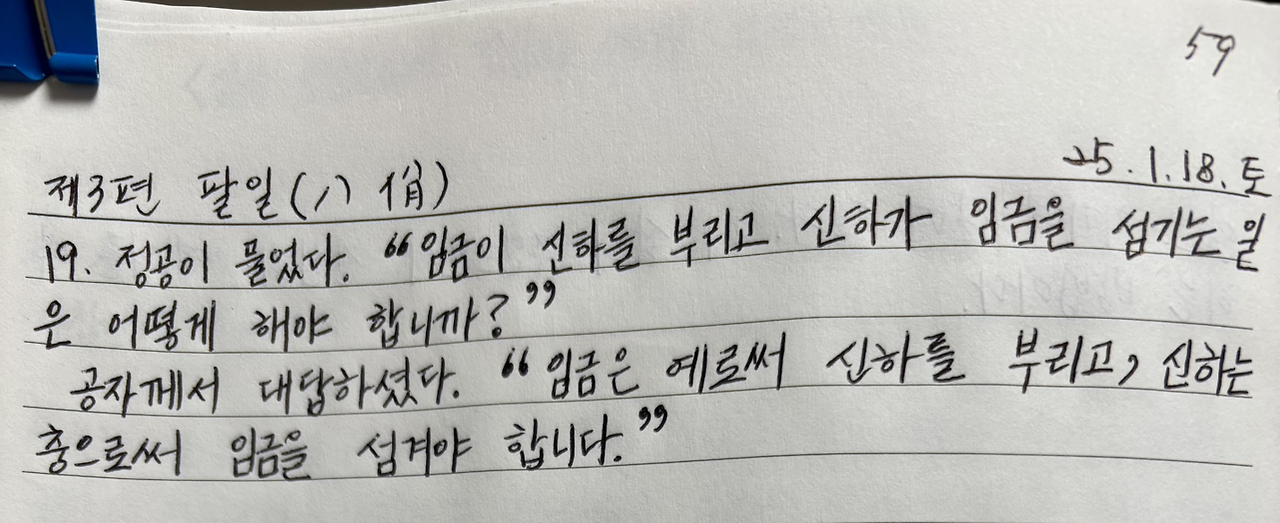 59
25.1.18.토
제3편 팔일(八佾)
19. 정공이 물었다. “임금이 신하를 부리고 신하가 임금을 섬기는 일
은 어떻게 해야 합니까?”
공자께서 대답하셨다. “임금은 예로써 신하를 부리고, 신하는
충으로써 임금을 섬겨야 합니다.”